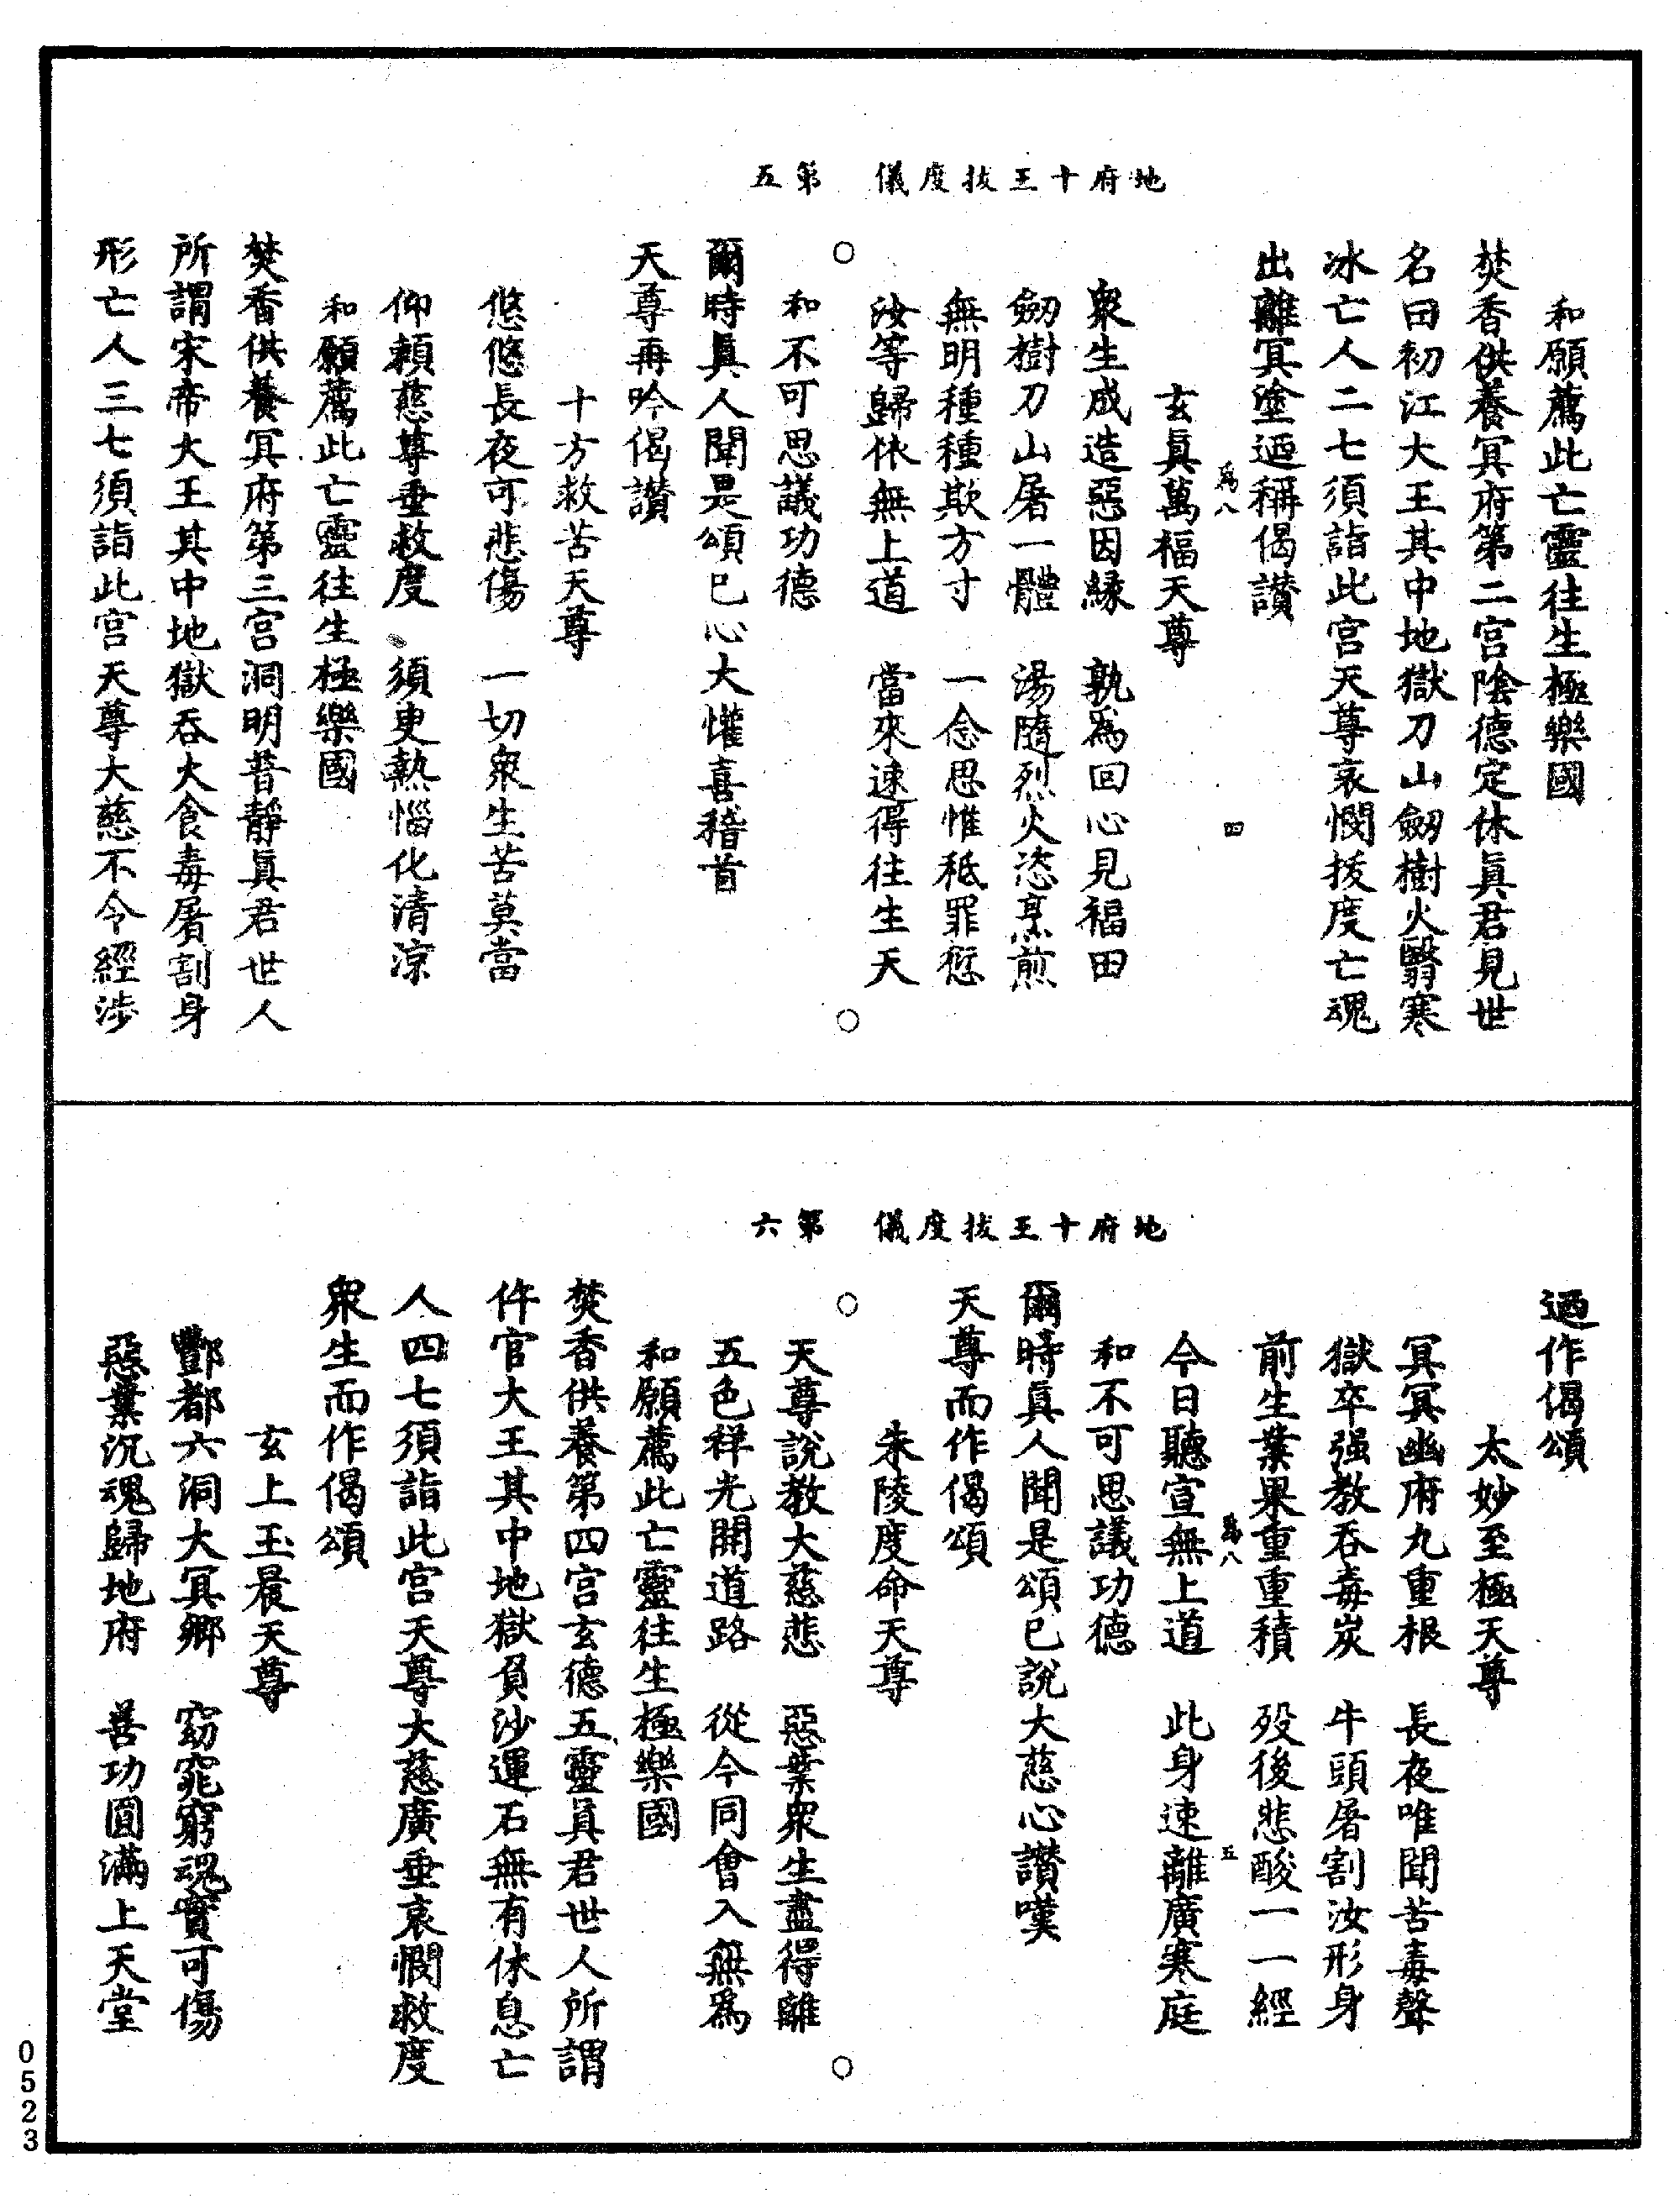 地府十王拔度儀　第五
和願薦此亡靈往生極樂國
焚香供養冥府第二宮陰德定休眞君見世
名曰初江大王其中地獄刀山劒樹火翳寒
冰亡人二七須詣此宮天尊哀憫拔度亡魂
出離冥塗廼稱偈讃
爲八　四
玄眞萬福天尊
衆生成造惡因緣　孰爲回心見福田
劒樹刀山屠一體　湯隨烈火恣烹煎
無明種種欺方寸　一念思惟秪罪愆
汝等歸依無上道　當來速得往生天
和不可思議功德
爾時眞人聞是頌已心大懽喜稽首
天尊再吟偈讃
十方救苦天尊
悠悠長夜可悲傷　一切衆生苦莫當
仰賴慈尊垂救度　須臾熱惱化清涼
和願薦此亡靈往生極樂國
焚香供養冥府第三宮洞明普靜眞君世人
所謂宋帝大王其中地獄吞火食毒屠割身
形亡人三七須詣此宮天尊大慈不令經涉
地府十王拔度儀　第六
廼作偈頌
太妙至極天尊
冥冥幽府九重根　長夜唯聞苦毒聲
獄卒强教吞毒炭　牛頭屠割汝形身
前生業果重重積　歿後悲酸一一經
爲八　五
今日聽宣無上道　此身速離廣寒庭
和不可思議功德
爾時眞人聞是頌已說大慈心讃嘆
天尊而作偈頌
朱陵度命天尊
天尊說教大慈悲　惡業衆生盡得離
五色祥光開道路　從今同會入無爲
和願薦此亡靈往生極樂國
焚香供養第四宮玄德五靈眞君世人所謂
仵官大王其中地獄負沙運石無有休息亡
人四七須詣此宮天尊大慈廣垂哀憫救度
衆生而作偈頌
玄上玉晨天尊
酆都六洞大冥鄉　窈窕窮魂實可傷
惡業沉魂歸地府　善功圓滿上天堂
0523